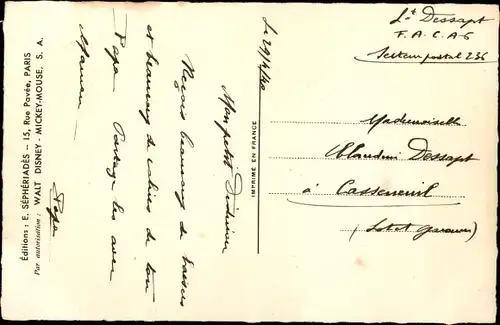 Lt Dessapt
F.A.C.A6
Secteur postal 236
Mademoiselle
Claudine Dessapt
à Casseneuil
(Lot et Garonne)
Le 29/4/40
Mon petit
Reçois beaucoup de baisers
et beaucoup de câlins de ton
Papa. Partage les avec
Maman
Papa
IMPRIMÉ EN FRANCE
Éditions : E. SÉPHÉRIADÈS — 15, Rue Pavée, PARIS
Par autorisation : WALT DISNEY - MICKEY-MOUSE. S. A.